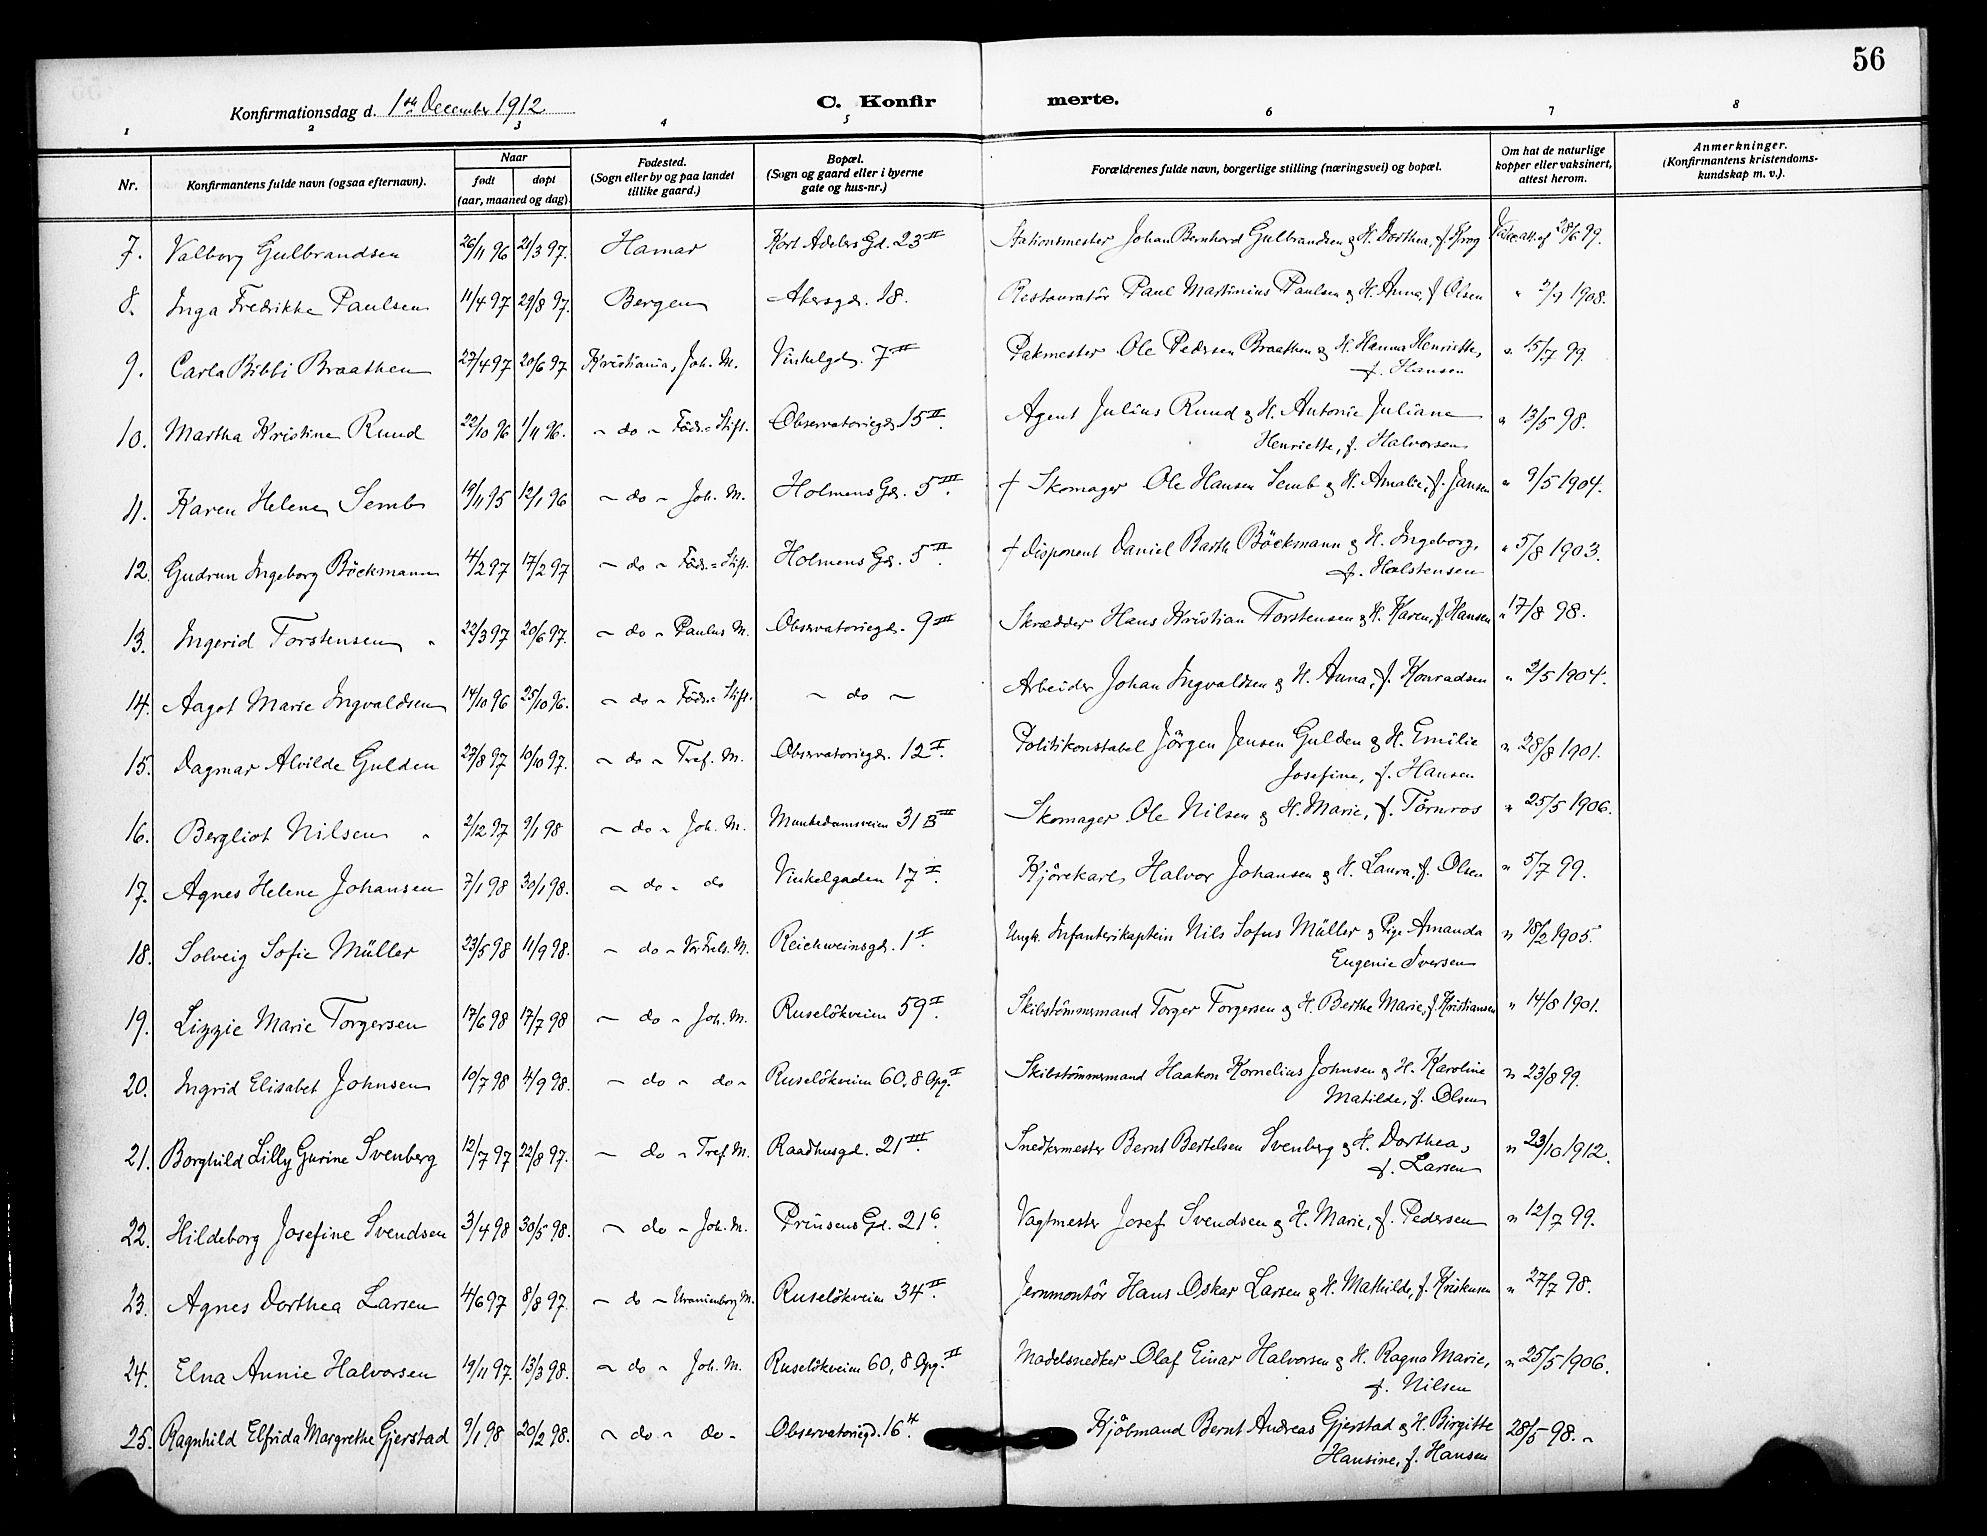 56
Konfirmationsdag d. 1ste December 1912
C. Konfir merte.
1 2 3 4 5 6 7 8
Nr. Konfirmantens fulde navn (ogsaa efternavn). Naar født døpt (aar, maaned og dag). Fødested. (Sogn eller by og paa landet tillike gaard.) Bopæl. (Sogn og gaard eller i byerne gate og hus-nr.) Forældrenes fulde navn, borgerlige stilling (næringsvei) og bopæl. Om hat de naturlige kopper eller vaksinert, attest herom. Anmerkninger. (Konfirmantens kristendoms-kundskap m. v.).
7. Valborg Gulbrandsen 26/11 96 21/3 97. Hamar Kort Adelers Gd. 23 II Stationsmester Johan Bernhard Gulbrandsen & H. Dorthea, f. Krog Vakc. att. af 28/6 99.
8. Inga Fredrikke Paulsen 11/4 97 29/8 97. Bergen Akersgd. 18. Restauratör Paul Martinius Paulsen & H. Anna, f. Olsen " 2/9 1908.
9. Carla Bibbi Braathen 27/4 97 20/6 97 Kristiania, Joh. M. Vinkelgd. 7 III Pakmester Ole Pedersen Braathen & H. Hanna Henriette, " 15/7 99.
f. Hansen
10. Martha Kristine Ruud 22/10 96 1/11 96. - do - Föds.= Stift. Observatoriegd. 15 II. Agent Julius Ruud & H. Antonie Juliane " 13/5 98.
Henriette, f. Halvorsen
11. Karen Helene Semb 19/11 95 12/1 96 - do - Joh. M. Holmens Gd. 5 III. † Skomager Ole Hansen Semb & H. Amalie, f. Jansen " 9/5 1904.
12. Gudrun Ingeborg Böckmann 4/2 97 17/2 97 - do - Föds.= Stift. Holmens Gd. 5 II. † Disponent Daniel Barth Böckmann & H. Ingeborg, " 5/8 1903.
f. Halstensen
13. Ingerid Torstensen 22/3 97 20/6 97. - do - Paulus M. Observatoriegd. 9 III Skrædder Hans Kristian Torstensen & H. Karen, f. Hansen " 17/8 98.
14. Aagot Marie Ingvaldsen 14/10 96 25/10 96. - do - Föds.= Stift. - do - Arbeider Johan Ingvaldsen & H. Anna, f. Konradsen " 2/5 1904.
15. Dagmar Alvilde Gulden 27/8 97 10/10 97. - do - Tref. M. Observatoriegd. 12 I. Politikonstabel Jörgen Jensen Gulden & H. Emilie " 28/8 1901.
Josefine, f. Hansen
16. Bergliot Nilsen 2/12 97 9/1 98 - do - Joh. M. Munkedamsveien 31 B III Skomager Ole Nilsen & H. Marie, f. Törnros " 25/5 1906.
17. Agnes Helene Johansen 7/1 98 30/1 98. - do - do Vinkelgaden 17 I. Kjörekarl Halvor Johansen & H. Laura, f. Olsen " 5/7 99.
18. Solveig Sofie Müller 23/5 98 11/9 98. - do - Vor Frels. M. Reichweinsgd. 1 I. Ungk. Infanterikaptein Nils Sofus Müller & Pige Amanda " 18/2 1905.
Eugenie Iversen
19. Lizzie Marie Torgersen 17/6 98 17/7 98 - do - Joh. M. Ruselökveien 59 I. Skibstömmermand Torger Torgersen & H. Berthe Marie, f. Kristiansen " 14/8 1901.
20. Ingrid Elisabet Johnsen 10/7 98 4/9 98. - do - do - Ruselökveien 60, 8 Opg. I Skibstömmermand Haakon Kornelius Johnsen & H. Karoline " 23/8 99.
Matilde, f. Olsen
21. Borghild Lilly Gurine Svenberg 12/7 97 22/8 97. - do - Tref M. Raadhusgd. 21 III. Snedkermester Bernt Bertelsen Svenberg & H. Dorthea, " 23/10 1912.
f. Larsen
22. Hildeborg Josefine Svendsen 3/4 98 30/5 98. - do - Joh. M. Prinsens Gd. 21 6. Vagtmester Josef Svendsen & H. Marie, f. Pedersen " 12/7 99.
23. Agnes Dorthea Larsen 4/6 97 8/8 97. - do - Uranienborg M. Ruselökveien 34 II. Jernmontör Hans Oskar Larsen & H. Mathilde, f. " 27/7 98.
24. Elna Annie Halvorsen 19/11 97. 13/3 98. - do - Joh. M. Ruselökveien 60, 8 Opg. II Modelsnedker Olaf Einar Halvorsen & H. Ragna Marie, " 25/5 1906.
f. Nilsen
25. Ragnhild Elfrida Margrethe Gjerstad 9/1 98 20/2 98. - do - do - Observatoriegd. 16 4. Kjöbmand Bernt Andreas Gjerstad & H. Birgitte 28/5 98. -
Hansine, f. Hansen